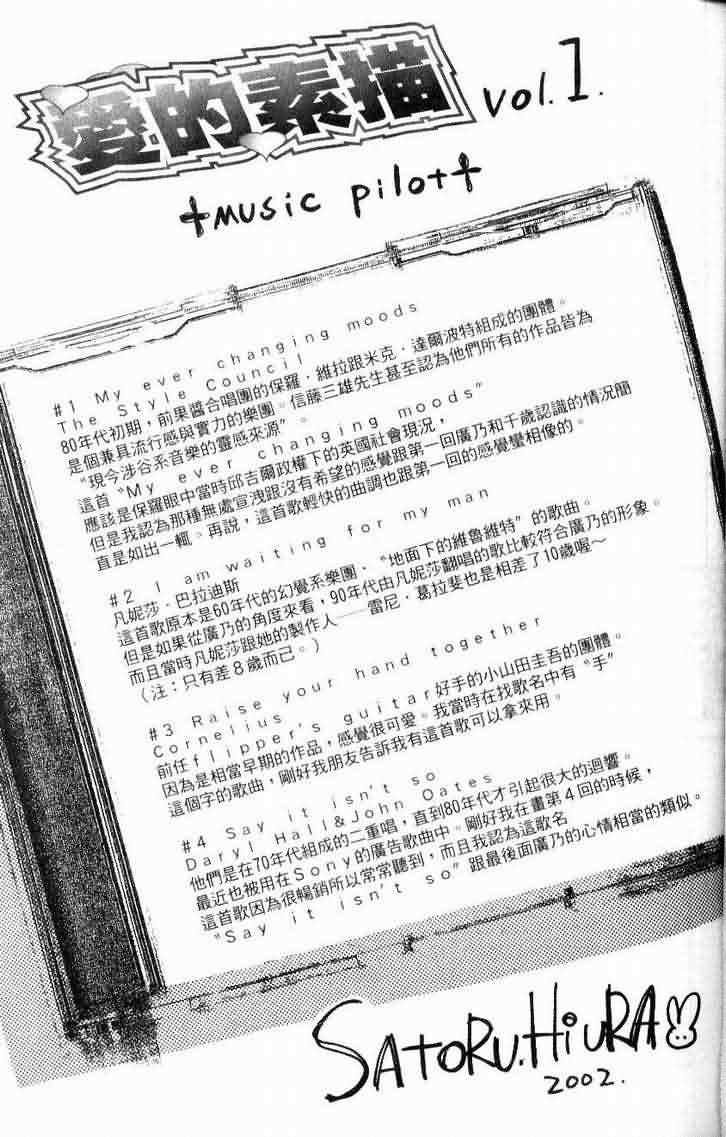 愛的素描 vol.1.
†music pilot†
#1 My ever changing moods
The Style Council
80年代初期，前果醬合唱團的保羅．維拉跟米克．達爾波特組成的團體。
是個兼具流行感與實力的樂團。信藤三雄先生甚至認為他們所有的作品皆為
“現今涉谷系音樂的靈感來源”。
這首“My ever changing moods”
應該是保羅眼中當時邱吉爾政權下的英國社會現況，
但是我認為那種無處宣洩跟沒有希望的感覺跟第一回廣乃和千歲認識的情況簡
直是如出一輒。再說，這首歌輕快的曲調也跟第一回的感覺蠻相像的。
#2 I am waiting for my man
凡妮莎．巴拉迪斯
這首歌原本是60年代的幻覺系樂團、“地面下的維魯維特”的歌曲。
但是如果從廣乃的角度來看，90年代由凡妮莎翻唱的歌比較符合廣乃的形象。
而且當時凡妮莎跟她的製作人——雷尼．葛拉斐也是相差了10歲喔～
（注：只有差８歲而已。）
#3 Raise your hand together
Cornelius
前任flipper's guitar好手的小山田圭吾的團體。
因為是相當早期的作品，感覺很可愛。我當時在找歌名中有“手”
這個字的歌曲，剛好我朋友告訴我有這首歌可以拿來用。
#4 Say it isn't so
Daryl Hall&John Oates
他們是在70年代組成的二重唱，直到80年代才引起很大的迴響。
最近也被用在Sony的廣告歌曲中。剛好我在畫第４回的時候，
這首歌因為很暢銷所以常常聽到，而且我認為這歌名
“Say it isn't so”跟最後面廣乃的心情相當的類似。
SATORU.HiURA
2002.